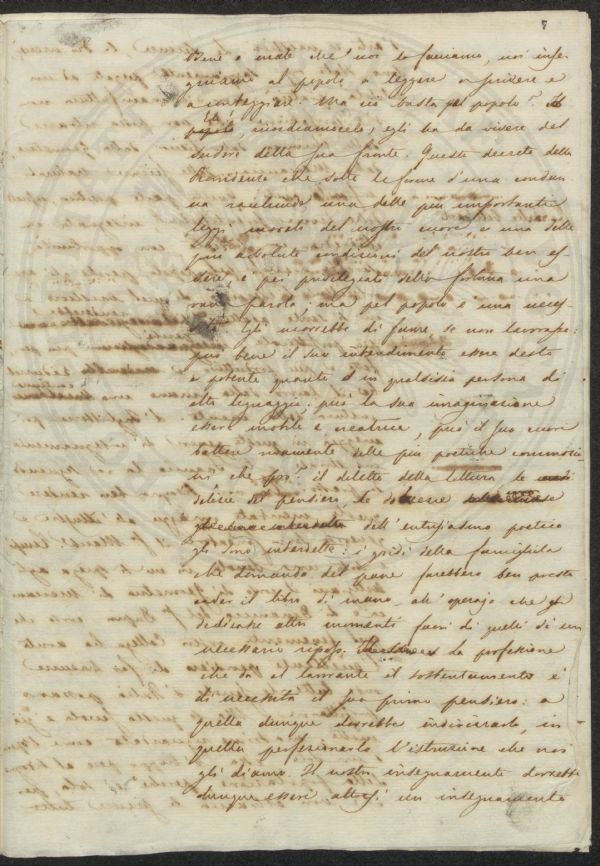 7
Bene o male che noi lo facciamo, noi inse-
gniamo al popolo a leggere a scrivere e
a conteggiare. Ma ciò basta pel popolo? Il
popolo, ricordiamocelo, egli ha da vivere del
sudore della sua fronte. Questo decreto della
Provvidenza che sotto le forme d'una condan
na racchiude una delle più importanti
leggi morali del nostro cuore, e una delle
più assolute condizioni del nostro ben es-
sere, è per privilegiati della fortuna una
vana parola: ma pel popolo è una neces-
sità. Egli morrebbe di fame se non lavorasse:
può bene il suo intendimento essere desto
e potente quanto è in qualsisia persona di
alto lignaggio: può la sua imaginazione
essere mobile e creatrice, può il suo cuore
battere vivamente delle più poetiche commozio-
ni che però? il diletto della lettura le
delizie del pensiero le
dell'entusiasmo poetico
gli sono interdette: i gridi della famigliola
che domanda del pane farebbero ben presto
cader il libro di mano all'operajo che gli
dedicasse altri momenti fuori di quelli di un
necessario riposo. La professione
che dà al lavorante il sostentamento è
di necessità il suo primo pensiero: a
quella dunque dovrebbe indirizzarlo, in
quella perfezionarlo l'istruzione che noi
gli diamo. Il nostro insegnamento dovrebbe
dunque essere altresì un insegnamento